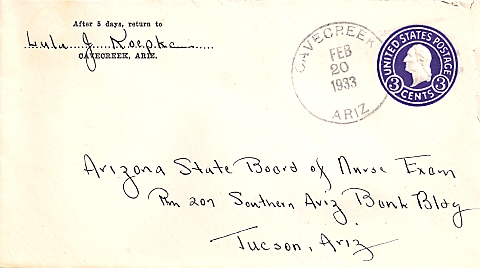 After 5 days, return to
Lulu J. Koepke
CAVECREEK, ARIZ.
CAVECREEK
FEB
20
1933
ARIZ
UNITED STATES POSTAGE
3 3
CENTS
Arizona State Board of Nurse Exam
Rm 207 Southern Ariz Bank Bldg
Tucson, Ariz